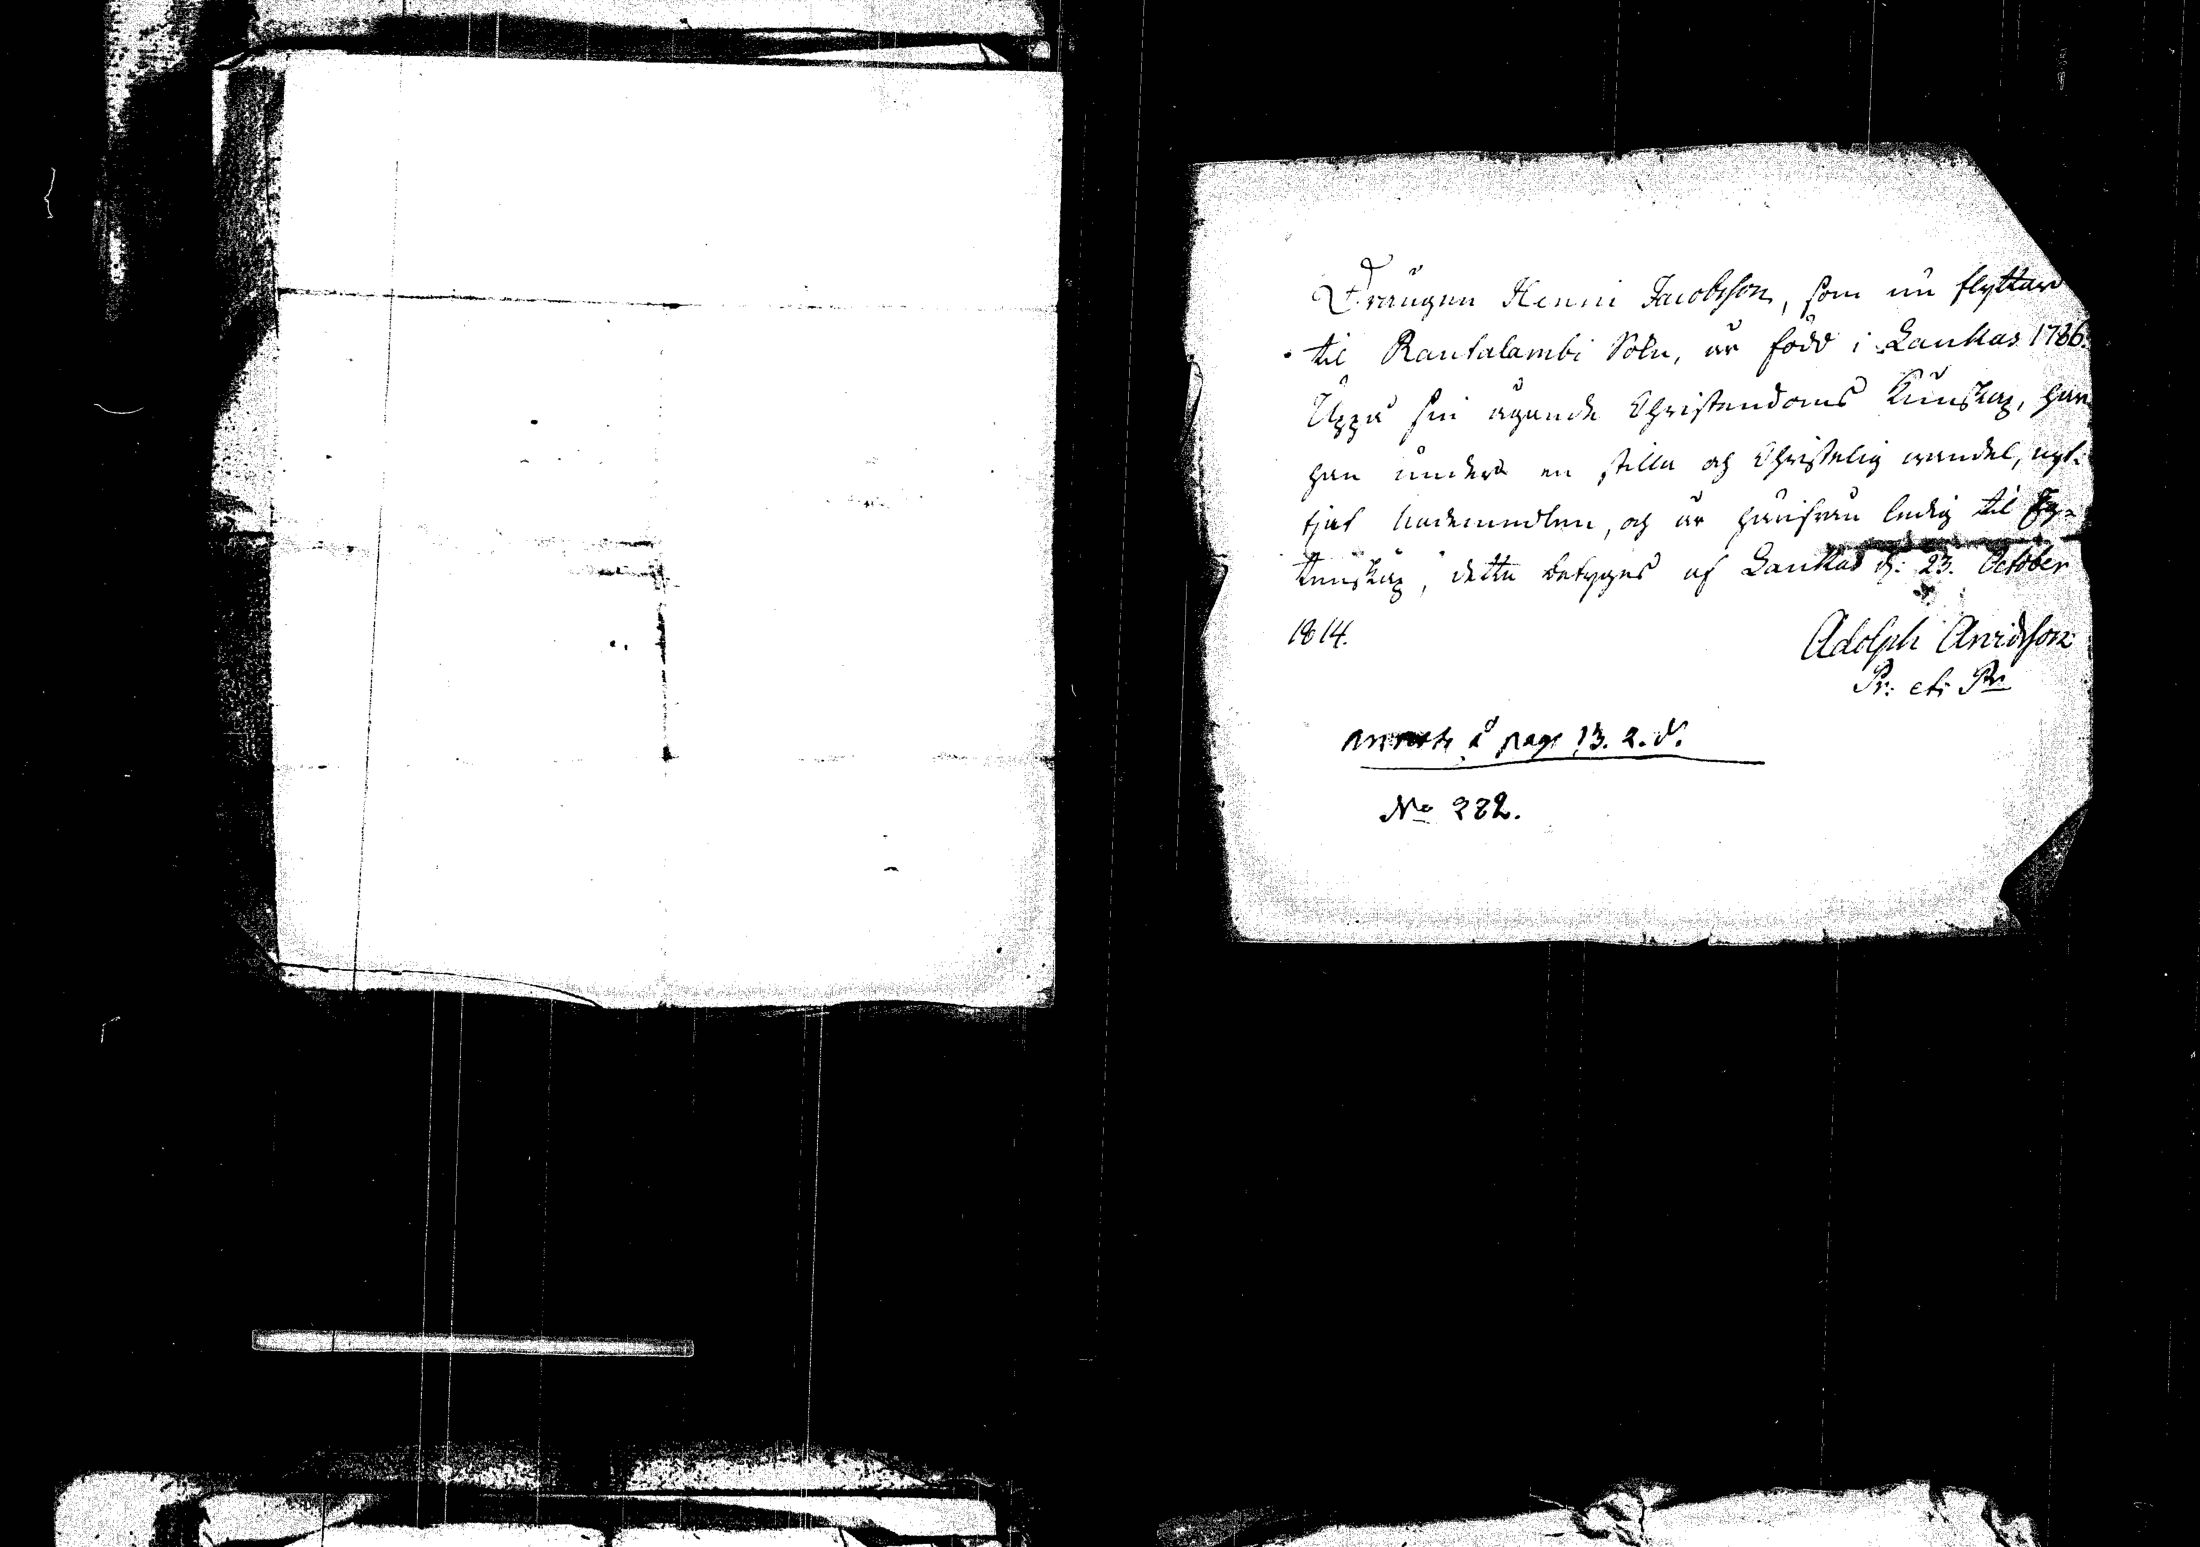 Drängen Henric Jacobsson, som nu flyttar
til Rautalambi Sokn, är född i Laukas 1786.
Uppå sin ägande Christendoms Kunskap, har
han under en stilla och Christelig wandel, nyt-
tjat nademedlen, och är härifrån ledig til Eg-
tenskap, detta betyges af Laukas d: 23. October
1814.
Adolph Arvidsson
Pr: et: Pr
å pag 13. 2. d.
No 282.